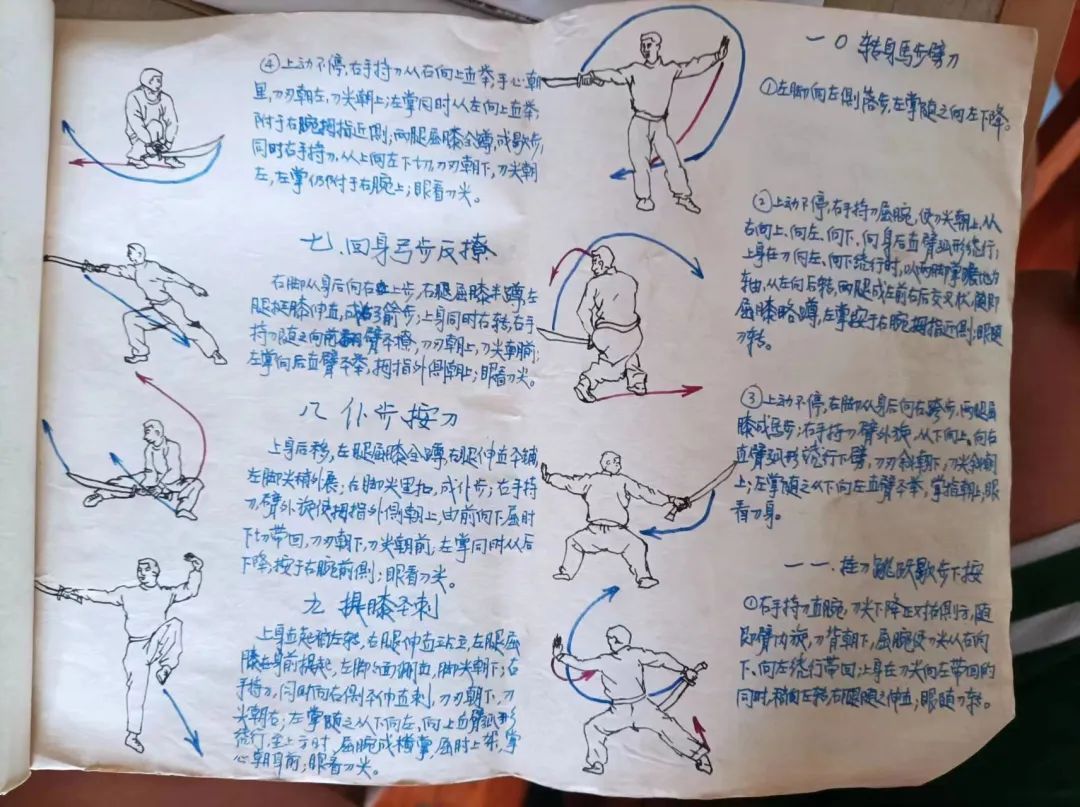 ④上动不停,右手持刀从右向上直举,手心朝
里,刀刃朝左,刀尖朝上;左掌同时从左向上直举,
附于右腕拇指近侧;两腿屈膝全蹲,成歇步,
同时右手持刀,从上向左下切,刀刃朝下,刀尖朝
左,左掌仍附于右腕上;眼看刀尖。
七.回身弓步反撩
右脚从身后向右上步,右腿屈膝半蹲,左
腿挺膝伸直,成右弓箭步;上身同时右转,右手
持刀随之向前臂平撩,刀刃朝上,刀尖朝前;
左掌向后直臂平举,拇指外侧朝上;眼看刀尖。
八 仆步按刀
上身后移,左腿屈膝全蹲,右腿伸直平铺
左脚尖稍外展;右脚尖里扣,成仆步;右手持
刀,臂外旋使拇指外侧朝上,由前向下屈肘
下切带回,刀刃朝下,刀尖朝前,左掌同时从后
下降,按于右腕前侧;眼看刀尖。
九 提膝平刺
上身直起稍左转,右腿伸直站立,左腿屈
膝在身前提起,左脚面绷直,脚尖朝下;右
手持刀,同时向右侧平伸直刺,刀刃朝下,刀
尖朝右;左掌随之从下向左,向上直臂弧形
绕行,至上方时,屈腕成横掌,屈肘上架,掌
心朝前;眼看刀尖。
一〇 转身马步劈刀
①左脚向左侧落步,左掌随之向左下降。
②上动不停,右手持刀屈腕,使刀尖朝上,从
右向上、向左、向下、向身后直臂弧形绕行;
上身在刀向左、向下绕行时,以两脚掌碾地为
轴,从左向后转,两腿成左前右后交叉状,随即
屈膝略蹲,左掌按于右腕拇指近侧;眼随
刀转。
③上动不停,右脚从身后向右跨步,两腿屈
膝成马步;右手持刀臂外旋,从下向上、向右
直臂弧形绕行下劈,刀刃斜朝下,刀尖斜朝
上;左掌随之从下向左直臂平举,掌指朝上;眼
看刀身。
一一.挂刀跳跃歇步下按
①右手持刀直腕,刀尖下降正对右侧方,随
即臂内旋,刀背朝下,屈腕使刀尖从右向
下、向左绕行带回;上身在刀尖向左带回的
同时稍向左转,右腿随之伸直;眼随刀转。